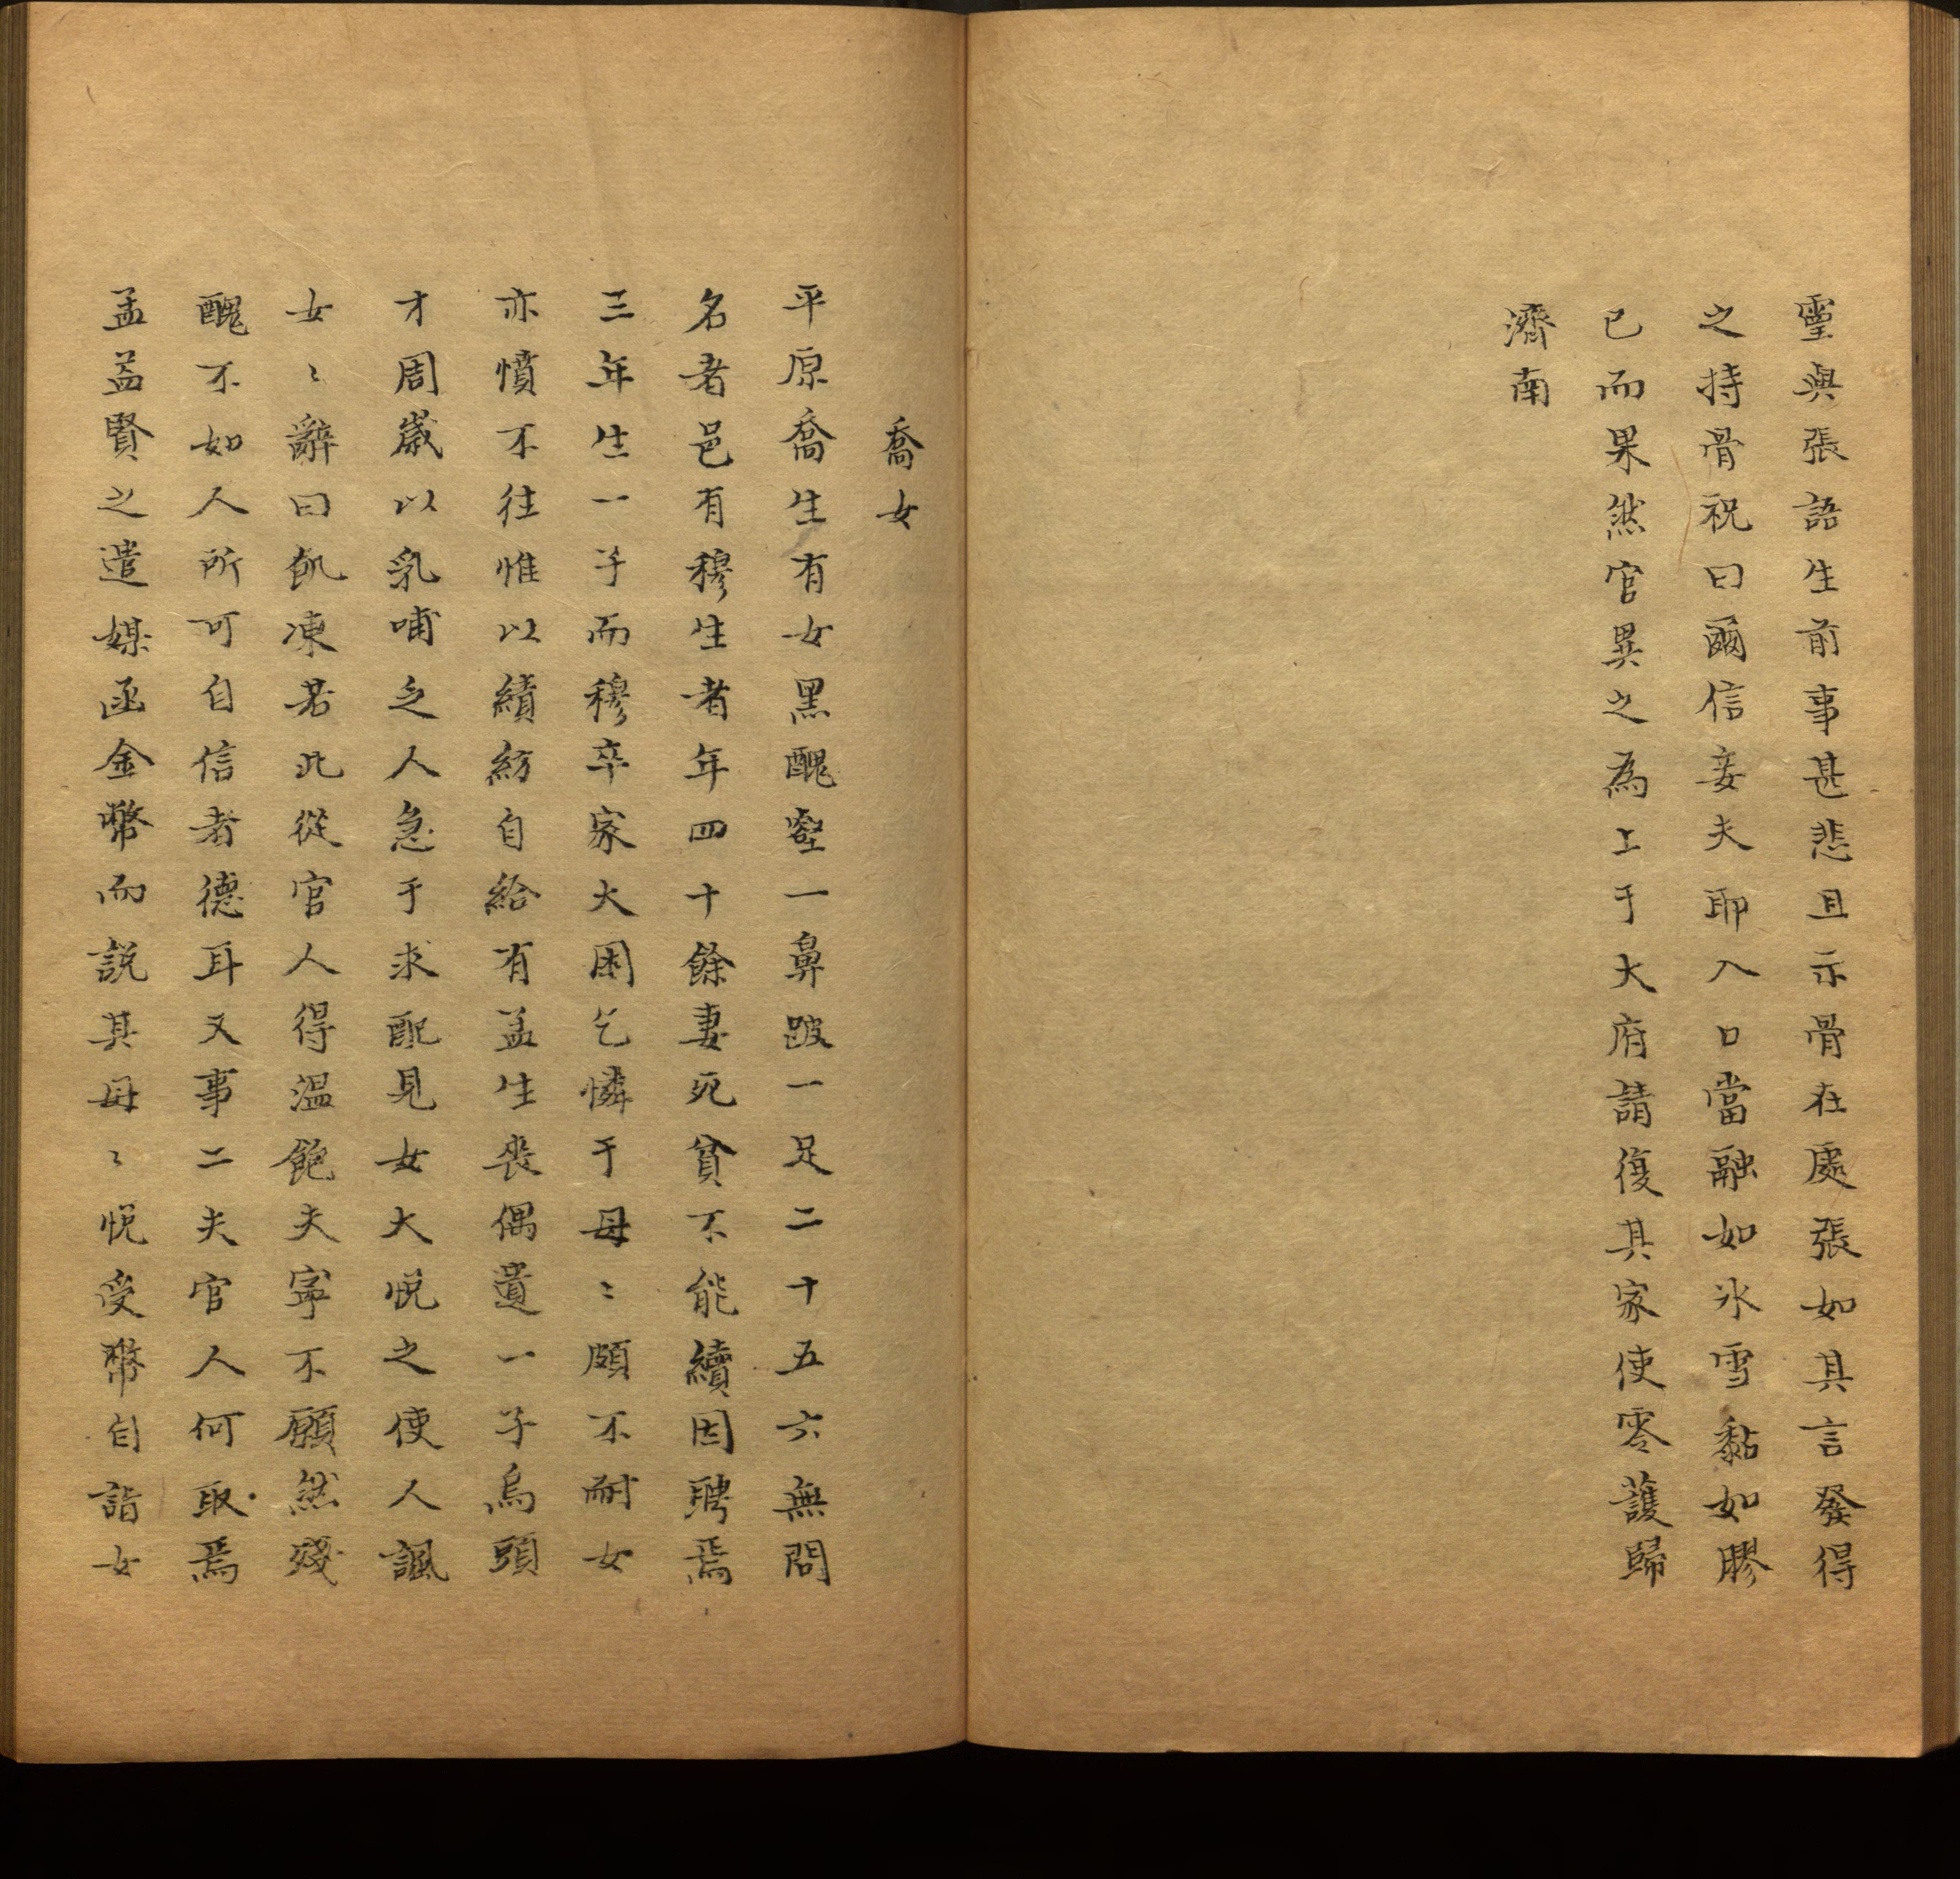 靈與張語生前事甚悲且示骨在處張如其言發得
之持骨祝曰爾信妾夫耶入口當融如氷雪黏如膠
已而果然官異之為上于大府請復其家使零護歸
濟南
喬女
平原喬生有女黑醜壑一鼻跛一足二十五六無問
名者邑有穆生者年四十餘妻死貧不能續因聘焉
三年生一子而穆卒家大困乞憐于母〻頗不耐女
亦憤不往惟以績紡自給有孟生喪偶遺一子烏頭
才周歲以乳哺乏人急于求配見女大悅之使人諷
女〻辭曰飢凍若此從官人得溫飽夫寧不願然殘
醜不如人所可自信者德耳又事二夫官人何取焉
孟益賢之遣媒函金幣而説其母〻悅受幣自詣女